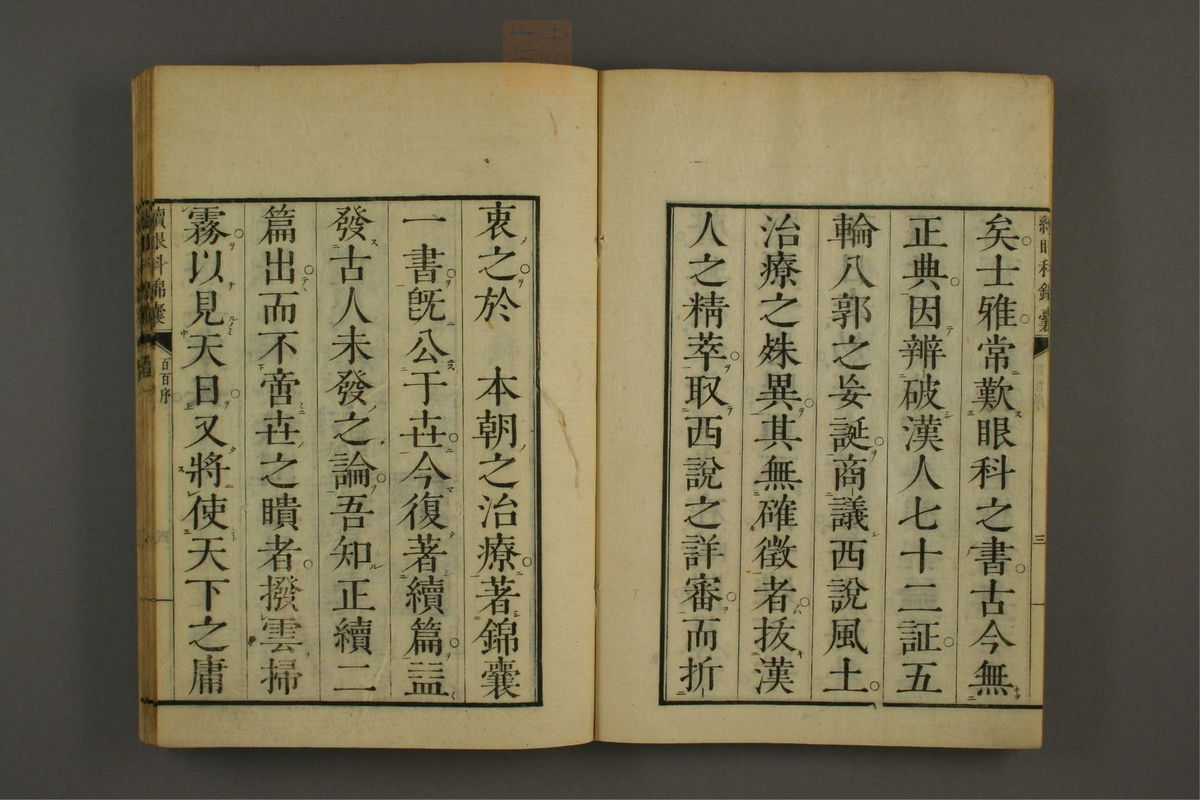 矣士雅常歎眼科之書古今無
正典因辨破漢人七十二証五
輪八郭之妄誕商議西說風土
治療之殊異其無確徵者拔漢
人之精萃取西說之詳審而折
三
衷之於　本朝之治療著錦囊
一書旣公于世今復著續篇益
發古人未發之論吾知正續二
篇出而不啻世之瞶者撥雲掃
霧以見天日又將使天下之庸
續眼科錦囊
序